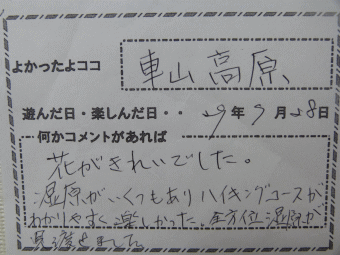 よかったよココ 車山高原
遊んだ日・楽しんだ日・・ 29年9月28日
何かコメントがあれば
花がきれいでした。
湿原がいくつもありハイキングコースが
わかりやすく楽しかった。全方位湿原が
見渡せました。